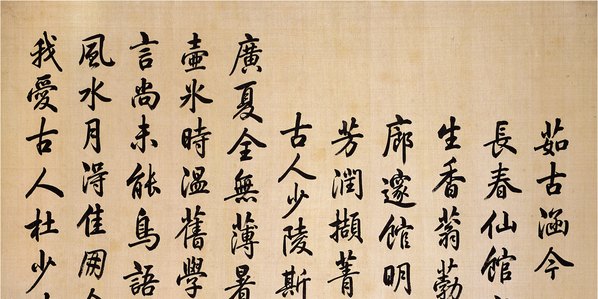 茹古涵今
長春仙館
生香蓊勃
廊邃館明
芳潤擷菁
古人少陵斯
廣夏全無薄暑
壺氷時溫舊學
言尚未能鳥語
風水月得佳閼
我愛古人杜少